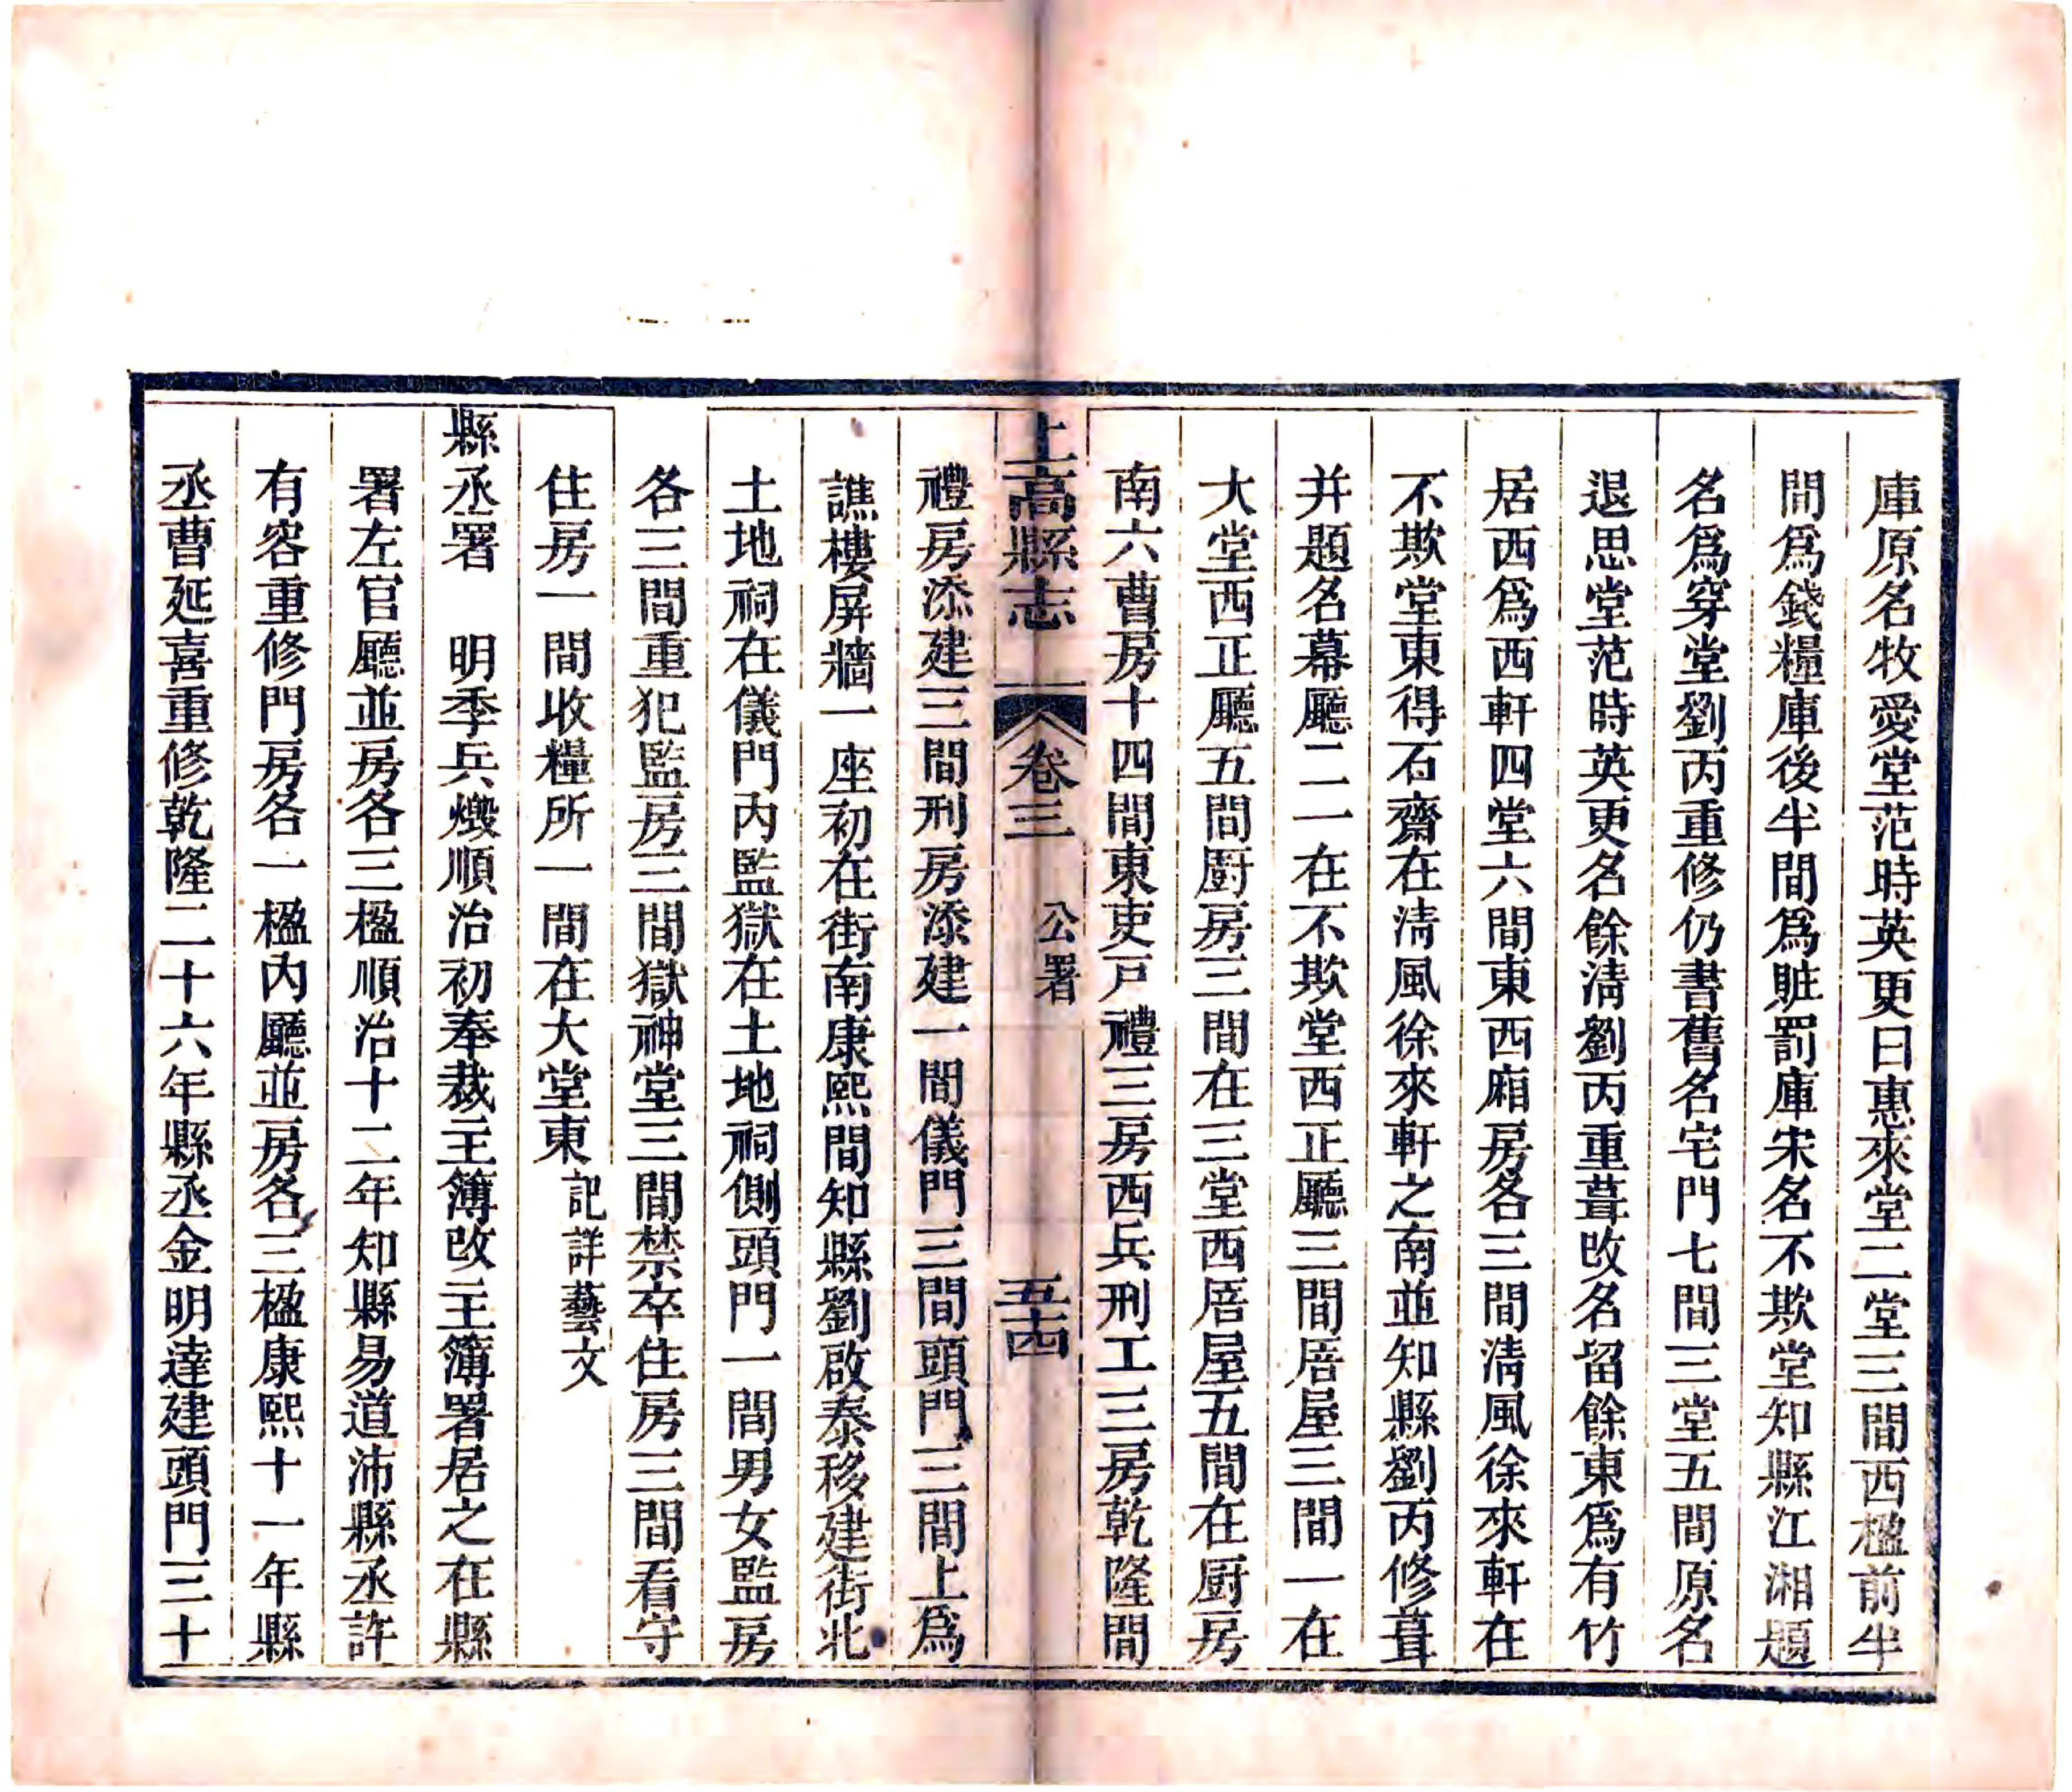 庫原名牧愛堂范時英更曰惠來堂二堂三間西楹前半
間爲錢糧庫後半間爲賍罰庫宋名不欺堂知縣江湘題
名爲穿堂劉丙重修仍書舊名宅門七間三堂五間原名
退思堂范時英更名餘淸劉丙重葺改名留餘東爲有竹
居西爲西軒四堂六間東西廂房各三間淸風徐來軒在
不欺堂東得石齋在淸風徐來軒之南並知縣劉丙修葺
并題名幕廳二一在不欺堂西正廳三間厝屋三間一在
大堂西正廳五間廚房三間在三堂西厝屋五間在廚房
南六曹房十四間東吏戸禮三房西兵刑工三房乾隆間
上高縣志 卷三 公署 五十四
禮房添建三間刑房添建一間儀門三間頭門三間上爲
譙樓屏牆一座初在街南康熙間知縣劉啟泰移建街北
土地祠在儀門內監獄在土地祠側頭門一間男女監房
各三間重犯監房三間獄神堂三間禁卒住房三間看守
住房一間收糧所一間在大堂東記詳藝文
縣丞署 明季兵燬順治初奉裁主簿改主簿署居之在縣
署左官廳並房各三楹順治十二年知縣易道沛縣丞許
有容重修門房各一楹內廳並房各三楹康熙十一年縣
丞曹延喜重修乾隆二十六年縣丞金明達建頭門三十